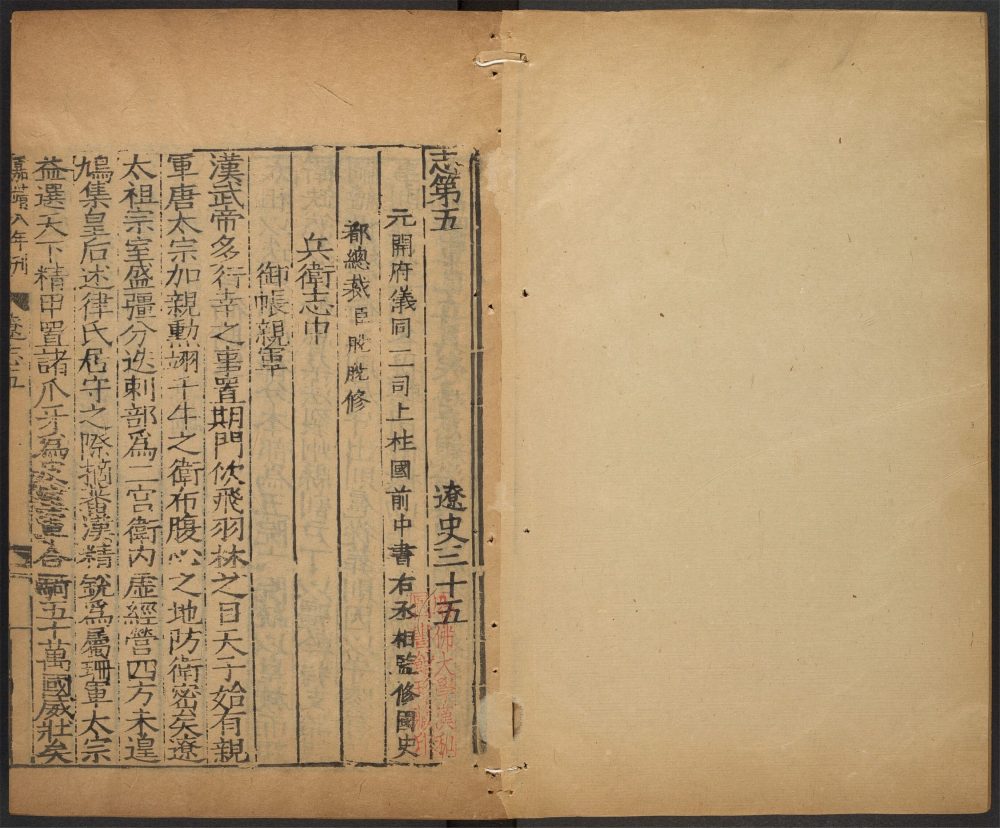 志第五 遼史三十五
元開府儀同三司上柱國前中書右丞相監修國史
都總裁臣脫脫修
兵衛志中
御帳親軍
漢武帝多行幸之事置期門佽飛羽林之目天子始有親
軍唐太宗加親勳翊千牛之衛布腹心之地防衛密矣遼
太祖宗室盛彊分迭剌部爲二宮衛內虛經營四方未遑
鳩集皇后述律氏居守之際摘蕃漢精銳爲屬珊軍太宗
益選天下精甲置諸爪牙爲皮室軍合騎五十萬國威壯矣
嘉靖八年刊 遼志五
哈佛大學漢和圖書館珍藏印